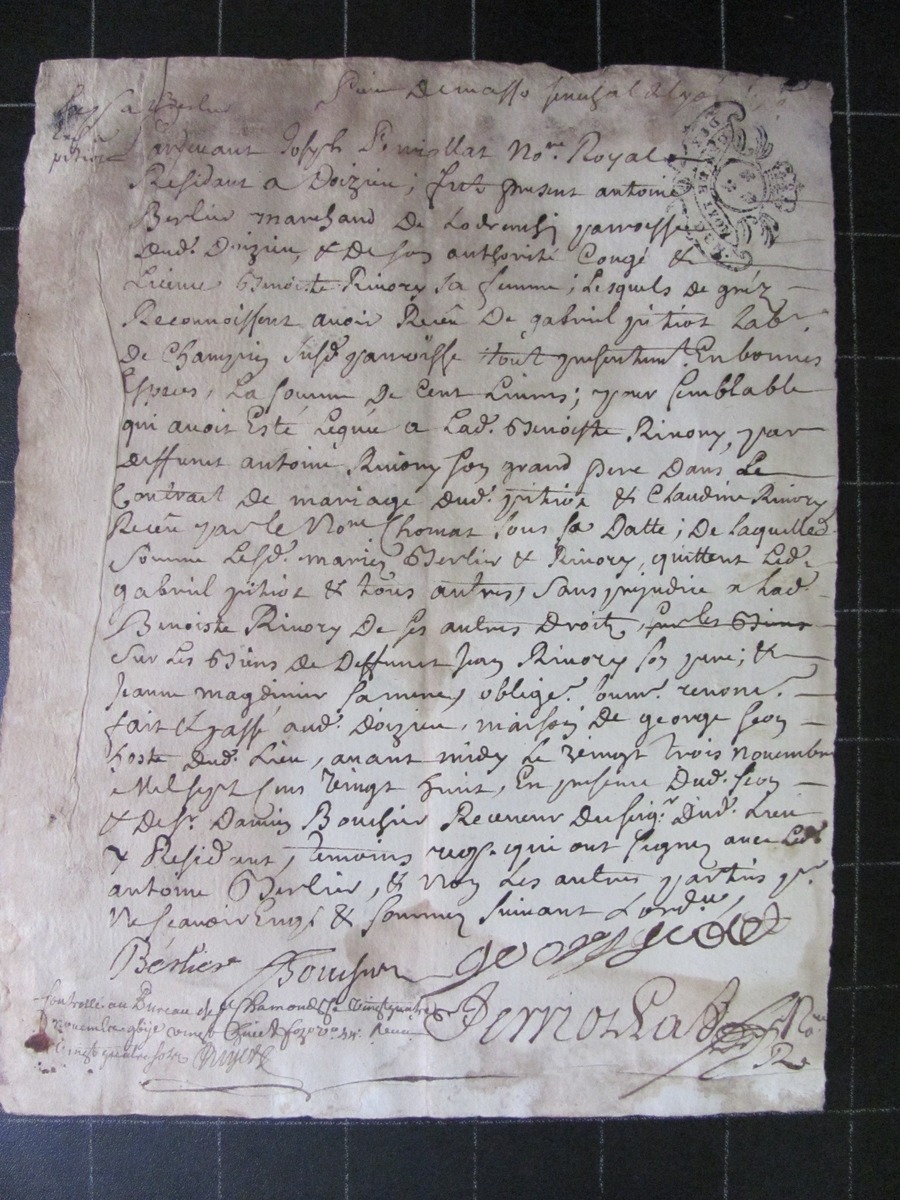 pardevant Joseph Perriollat No.re Royal
Residant a Doizieu; fut present antoine
Berlier marchand de parroisse
dud. Doizieu, & de son authorité Congé &
Licence Benoiste Rivory sa femme; Lesquels de gréz
Reconnoissent avoir Receu De gabriel pitiot Lab.r
de susd. parroisse tout presentem.t En bonnes
Especes, La somme de Cent Livres; pour semblable
qui avoit Esté Leguée a Lad. Benoiste Rivory, par
deffunct antoine Rivory son grand pere Dans Le
Contrait de mariage dud. pitiot & Claudine Rivory
Receu par le No.re Thomas sous sa Datte; De Laquelle
somme Lesd. mariez Berlier & Rivory, quittent Led.
gabriel pitiot & tous autres, sans prejudice a Lad.
Benoiste Rivory De ses autres Droits, sur les Biens
sur Les Biens de Deffunct Jean Rivory son pere; &
Jeanne sa mere, oblige.t soum. renonc.
fait & passé aud. doizieu, maison de george
hoste dud. Lieu, avant midy Le vingt trois novembre
Mil sept cens vingt huit, En presence Dud.
& De S.r Damien Bouchier Receveur du seig.r dud. Lieu
& Resident, temoins req.s qui ont signez avec Led.
antoine Berlier, & non Les autres parties p.r
ne sçavoir Enq.s & sommez suivant L'ord.ce
Berlier Bouchier george
Controllé au Bureau de St Chamond Le vingt quatre
novembre vingt huit Receu
vingt quatre sols
Perriollat No.re
R.